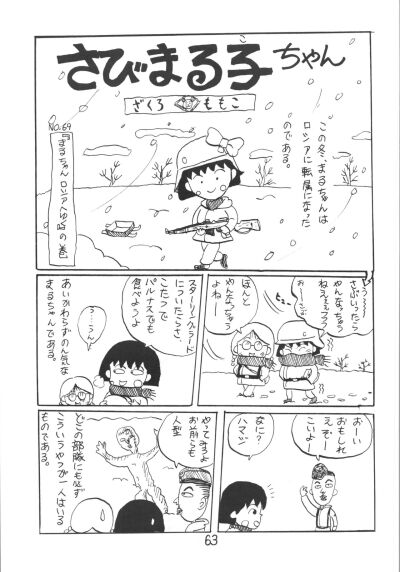 さびまる子ちゃん
ざくろ ももこ
No.69
『まるちゃん ロシアへゆく』の巻
この冬、まるちゃんは
ロシアに転属になった
のである。
さぶいったら
やんなっちゃう
ねえェ
ヒュー
ほんと
やんなっちゃう
よねー
スターリングラード
についたらさ、
こたつで
パルナスでも
食べようよ
う…うん
あいかわらずのん気な
まるちゃんである。
おーい
おもしれ
えぞー
こいよー
なに?
ハマジ
やってみろよ
お前らも
人型
どこの部隊にも必ず
こういうやつが一人はいる
ものである。
63